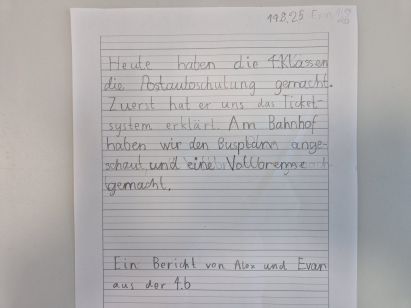 19.8.25
Heute haben die 4.Klassen
die Postautoschulung gemacht.
Zuerst hat er uns das Ticket-
system erklärt. Am Bahnhof
haben wir den Busplann ange-
schaut und eine Vollbremse
gemacht.
Ein Bericht von Alex und Evan
aus der 4.b